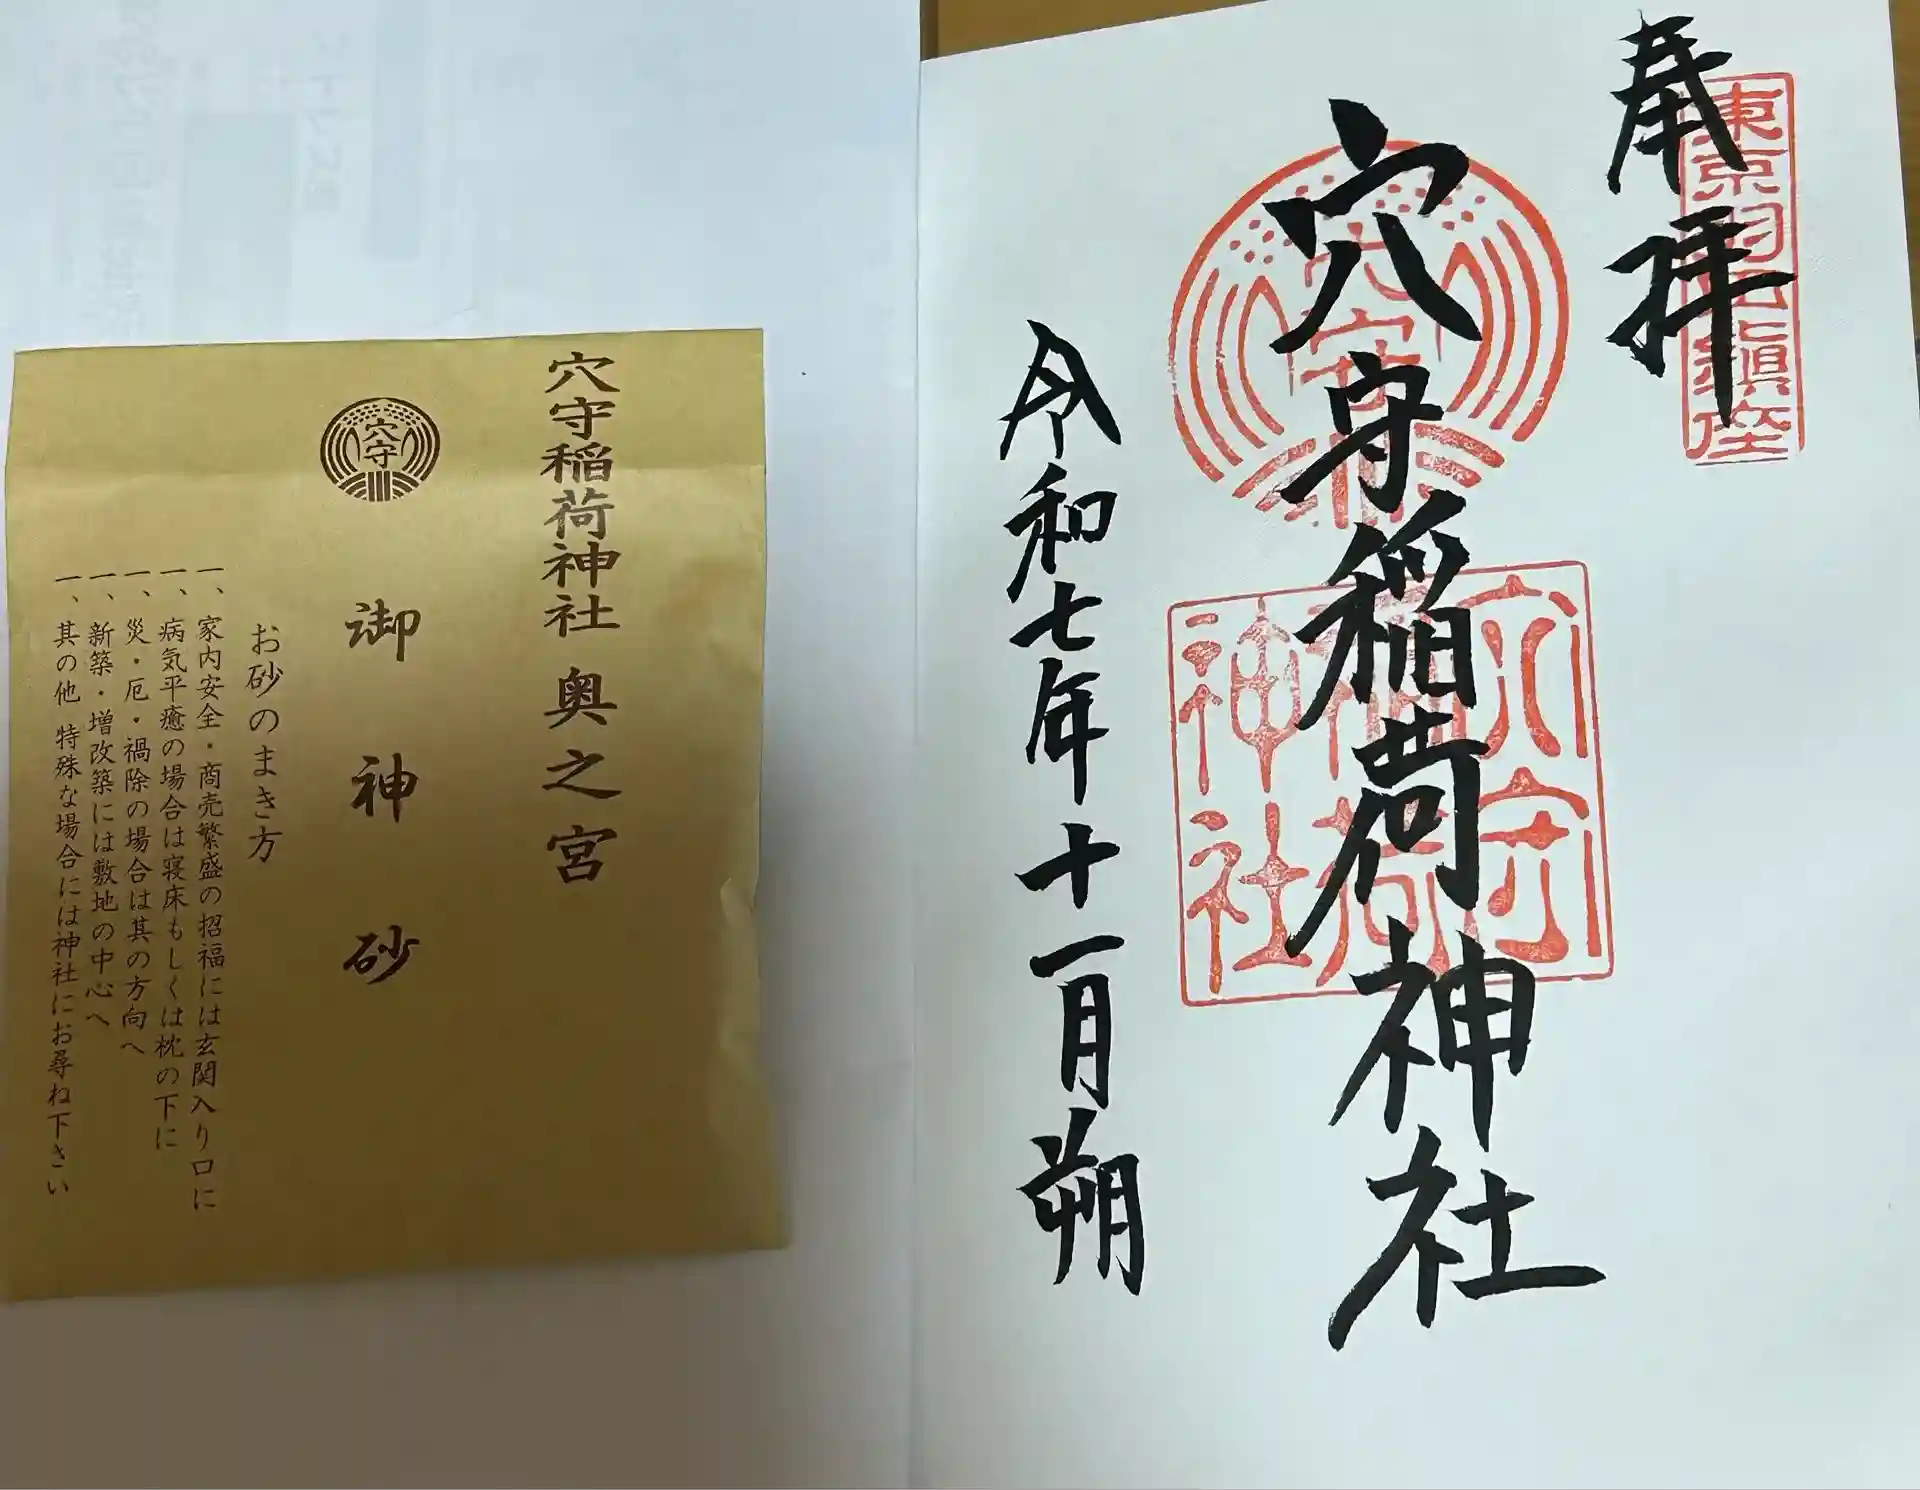 奉拝
東京羽田鎮座
穴守稲荷神社
穴守
穴守
稲荷
神社
令和七年十一月朔
穴守稲荷神社 奥之宮
穴守
御神砂
お砂のまき方
一、家内安全・商売繁盛の招福には玄関入り口に
一、病気平癒の場合は寝床もしくは枕の下に
一、災・厄・禍除の場合は其の方向へ
一、新築・増改築には敷地の中心へ
一、其の他 特殊な場合には神社にお尋ね下さい